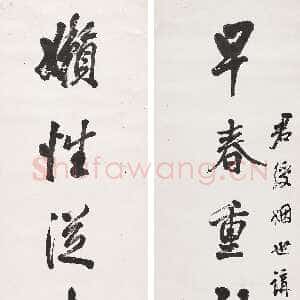 君綬姻世講
早春重
嬾性從
Shufawang.CN